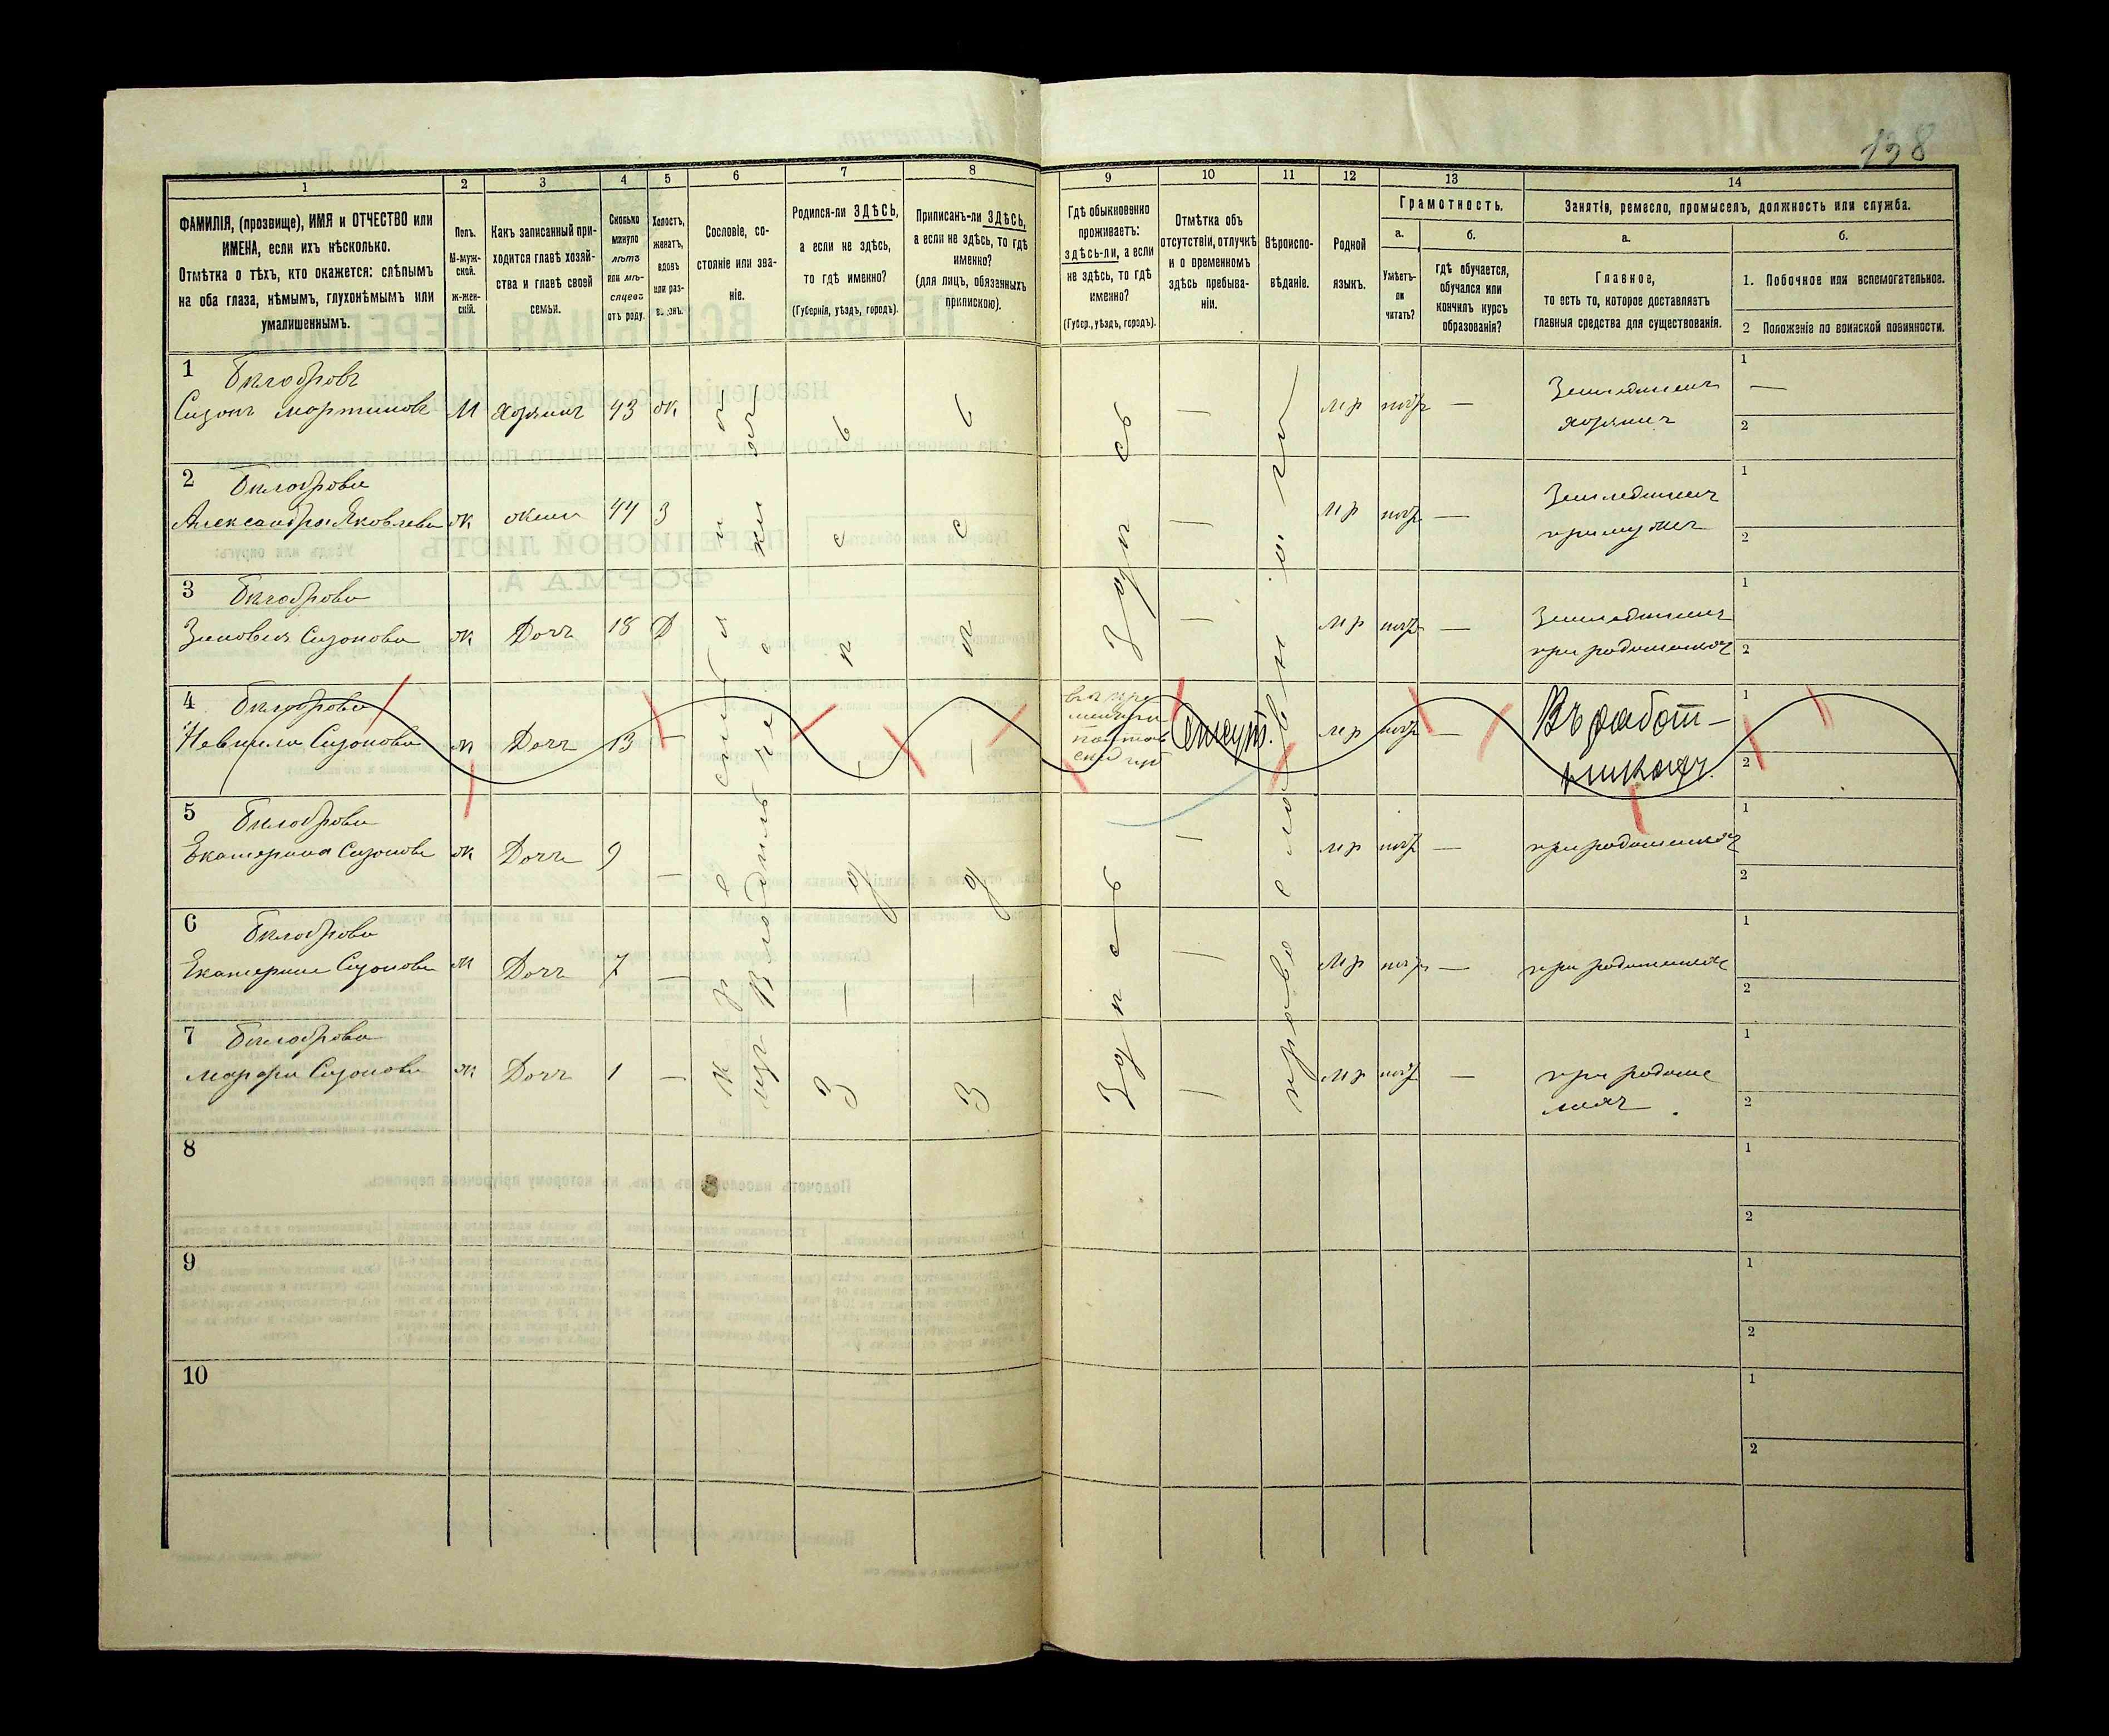 138
1 2 3 4 5 6 7 8 9 10 11 12 13 14
ФАМИЛІЯ, (прозвище), ИМЯ и ОТЧЕСТВО или
ИМЕНА, если ихъ нѣсколько.
Отмѣтка о тѣхъ, кто окажется: слѣпымъ
на оба глаза, нѣмымъ, глухонѣмымъ или
умалишеннымъ.
Полъ.
М-муж-
ской.
ж-жен-
скій.
Какъ записанный при-
ходится главѣ хозяй-
ства и главѣ своей
семьи.
Сколько
минуло
лѣтъ
или мѣ-
сяцевъ
отъ роду.
Холостъ,
женатъ,
вдовъ
или раз-
Сословіе, со-
стояніе или зва-
ніе.
Родился-ли ЗДѢСЬ,
а если не здѣсь,
то гдѣ именно?
(Губернія, уѣздъ, городъ).
Приписанъ-ли ЗДѢСЬ,
а если не здѣсь, то гдѣ
именно?
(для лицъ, обязанныхъ
припискою).
Гдѣ обыкновенно
проживаетъ:
здѣсь-ли, а если
не здѣсь, то гдѣ
именно?
(Губер., уѣздъ, городъ).
Отмѣтка объ
отсутствіи, отлучкѣ
и о временномъ
здѣсь пребыва-
ніи.
Вѣроиспо-
вѣданіе.
Родной
языкъ.
Грамотность.
а.
Умѣетъ-
ли
читать?
б.
гдѣ обучается,
обучался или
кончилъ курсъ
образованія?
Занятіе, ремесло, промыселъ, должность или служба.
а.
Главное,
то есть то, которое доставляетъ
главныя средства для существованія.
б.
1. Побочное или вспомогательное.
2 Положеніе по воинской повинности.
1 Билобровъ
Сизонъ Мартиновъ М Хозяинъ 43 ж. — мр негр — Земледѣлецъ
хозяинъ
1 —
2
2 Билоброва
Александра Яковлева ж жена 44 З — мр негр — Земледѣлецъ
при мужѣ
1
2
3 Билоброва
Зиновия Сизонова ж Дочь 18 Д — мр негр — Земледѣлецъ
при родителяхъ
1
2
4 Билоброва
Сизонова ж Дочь 13 — Отсут. мр негр — Въ работ-
никахъ.
1
2
5 Билоброва
Екатерина Сизонова ж Дочь 9 — — мр негр — при родителяхъ
1
2
6 Билоброва
Екатерина Сизонова ж Дочь 7 — — мр негр — при родителяхъ
1
2
7 Билоброва
Сизонова ж Дочь 1 — — мр негр — при родите
ляхъ
1
2
Здѣсь
Здѣсь
Здѣсь
Здѣсь
православное
8
1
2
9
1
2
10
1
2